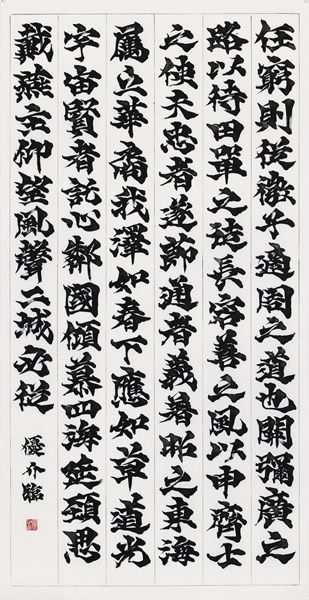 任窮則從微子適周之道也開彌廣之
路以待田單之徒長容善之風以申齊士
之使夫忠者遂節通者義著昭之東海
屬之華裔我澤如春下應如草道光
宇宙賢者託心鄰國傾慕四海延頸思
戴燕主仰望風聲二城必從
優介臨